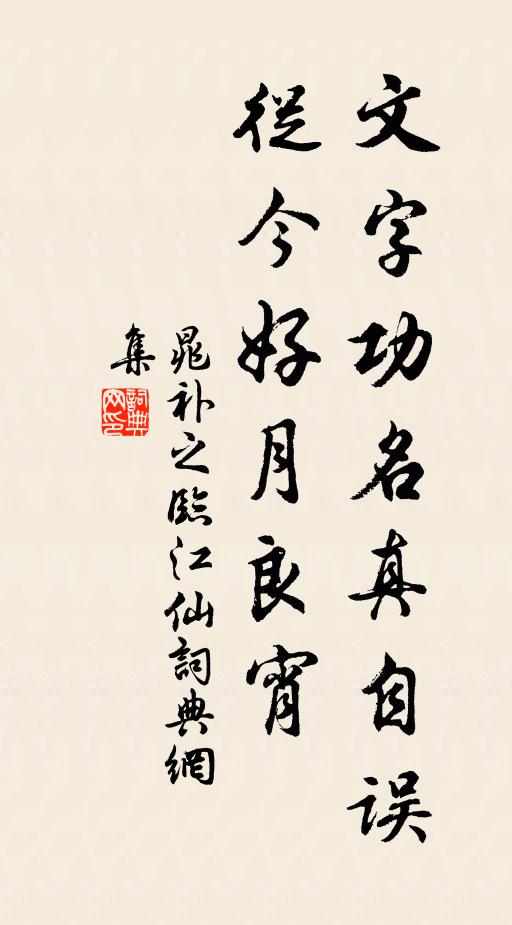 文字功名真自误
從今好月良宵
晁补之臨江仙詞典網
集
詞典网印